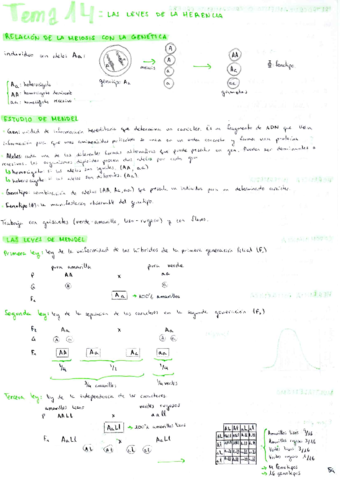 Tema 14: LAS LEYES DE LA HERENCIA
RELACIÓN DE LA MEIOSIS CON LA GENÉTICA
individuo con alelos Aa:
Aa: heterocigoto
AA: homocigoto dominante
aa: homocigoto recesivo
genotipo Aa
meiosis
A
A
a
a
AA
Aa
aa
gametos
ESTUDIO DE MENDEL
· Gen: unidad de información hereditaria que determina un carácter. Es un fragmento de ADN que lleva
información para que
· Alelos: cada una de las diferentes formas alternativas que puede presentar un gen. Pueden ser dominantes o
recesivos. Los organismos diploides poseen dos alelos por cada gen
homocigoto: si los alelos son iguales (AA, aa)
heterocigoto: si los alelos son distintos (Aa)
· Genotipo: combinación de alelos (AA, Aa, aa) que presenta un individuo para un determinado carácter
· Fenotipo: es la manifestación observable del genotipo.
Trabajó con guisantes (verde-amarillo, liso-rugoso) y con flores.
LAS LEYES DE MENDEL
Primera ley: ley de la uniformidad de los híbridos de la primera generación filial (F₁)
pura amarilla pura verde
P AA x aa
G A a
F₁ Aa → 100% amarillas
Segunda ley: ley de la separación de los caracteres en la segunda generación (F₂)
F₁ Aa x Aa
G A a A a
F₂ AA Aa Aa aa
1/4 1/2 1/4
3/4 amarillos 1/4 verdes
Tercera ley: ley de la independencia de los caracteres
amarillos lisos verdes rugosos
P AALL x aall
AaLl → 100% amarillos lisos
F₁ AaLl x AaLl
AL Al aL al
Amarillos lisos 9/16
Amarillos rugosos 3/16
Verdes lisos 3/16
Verdes rugosos 1/16
4 fenotipos